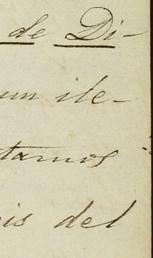 de Di-
un ile-
tamos
is del